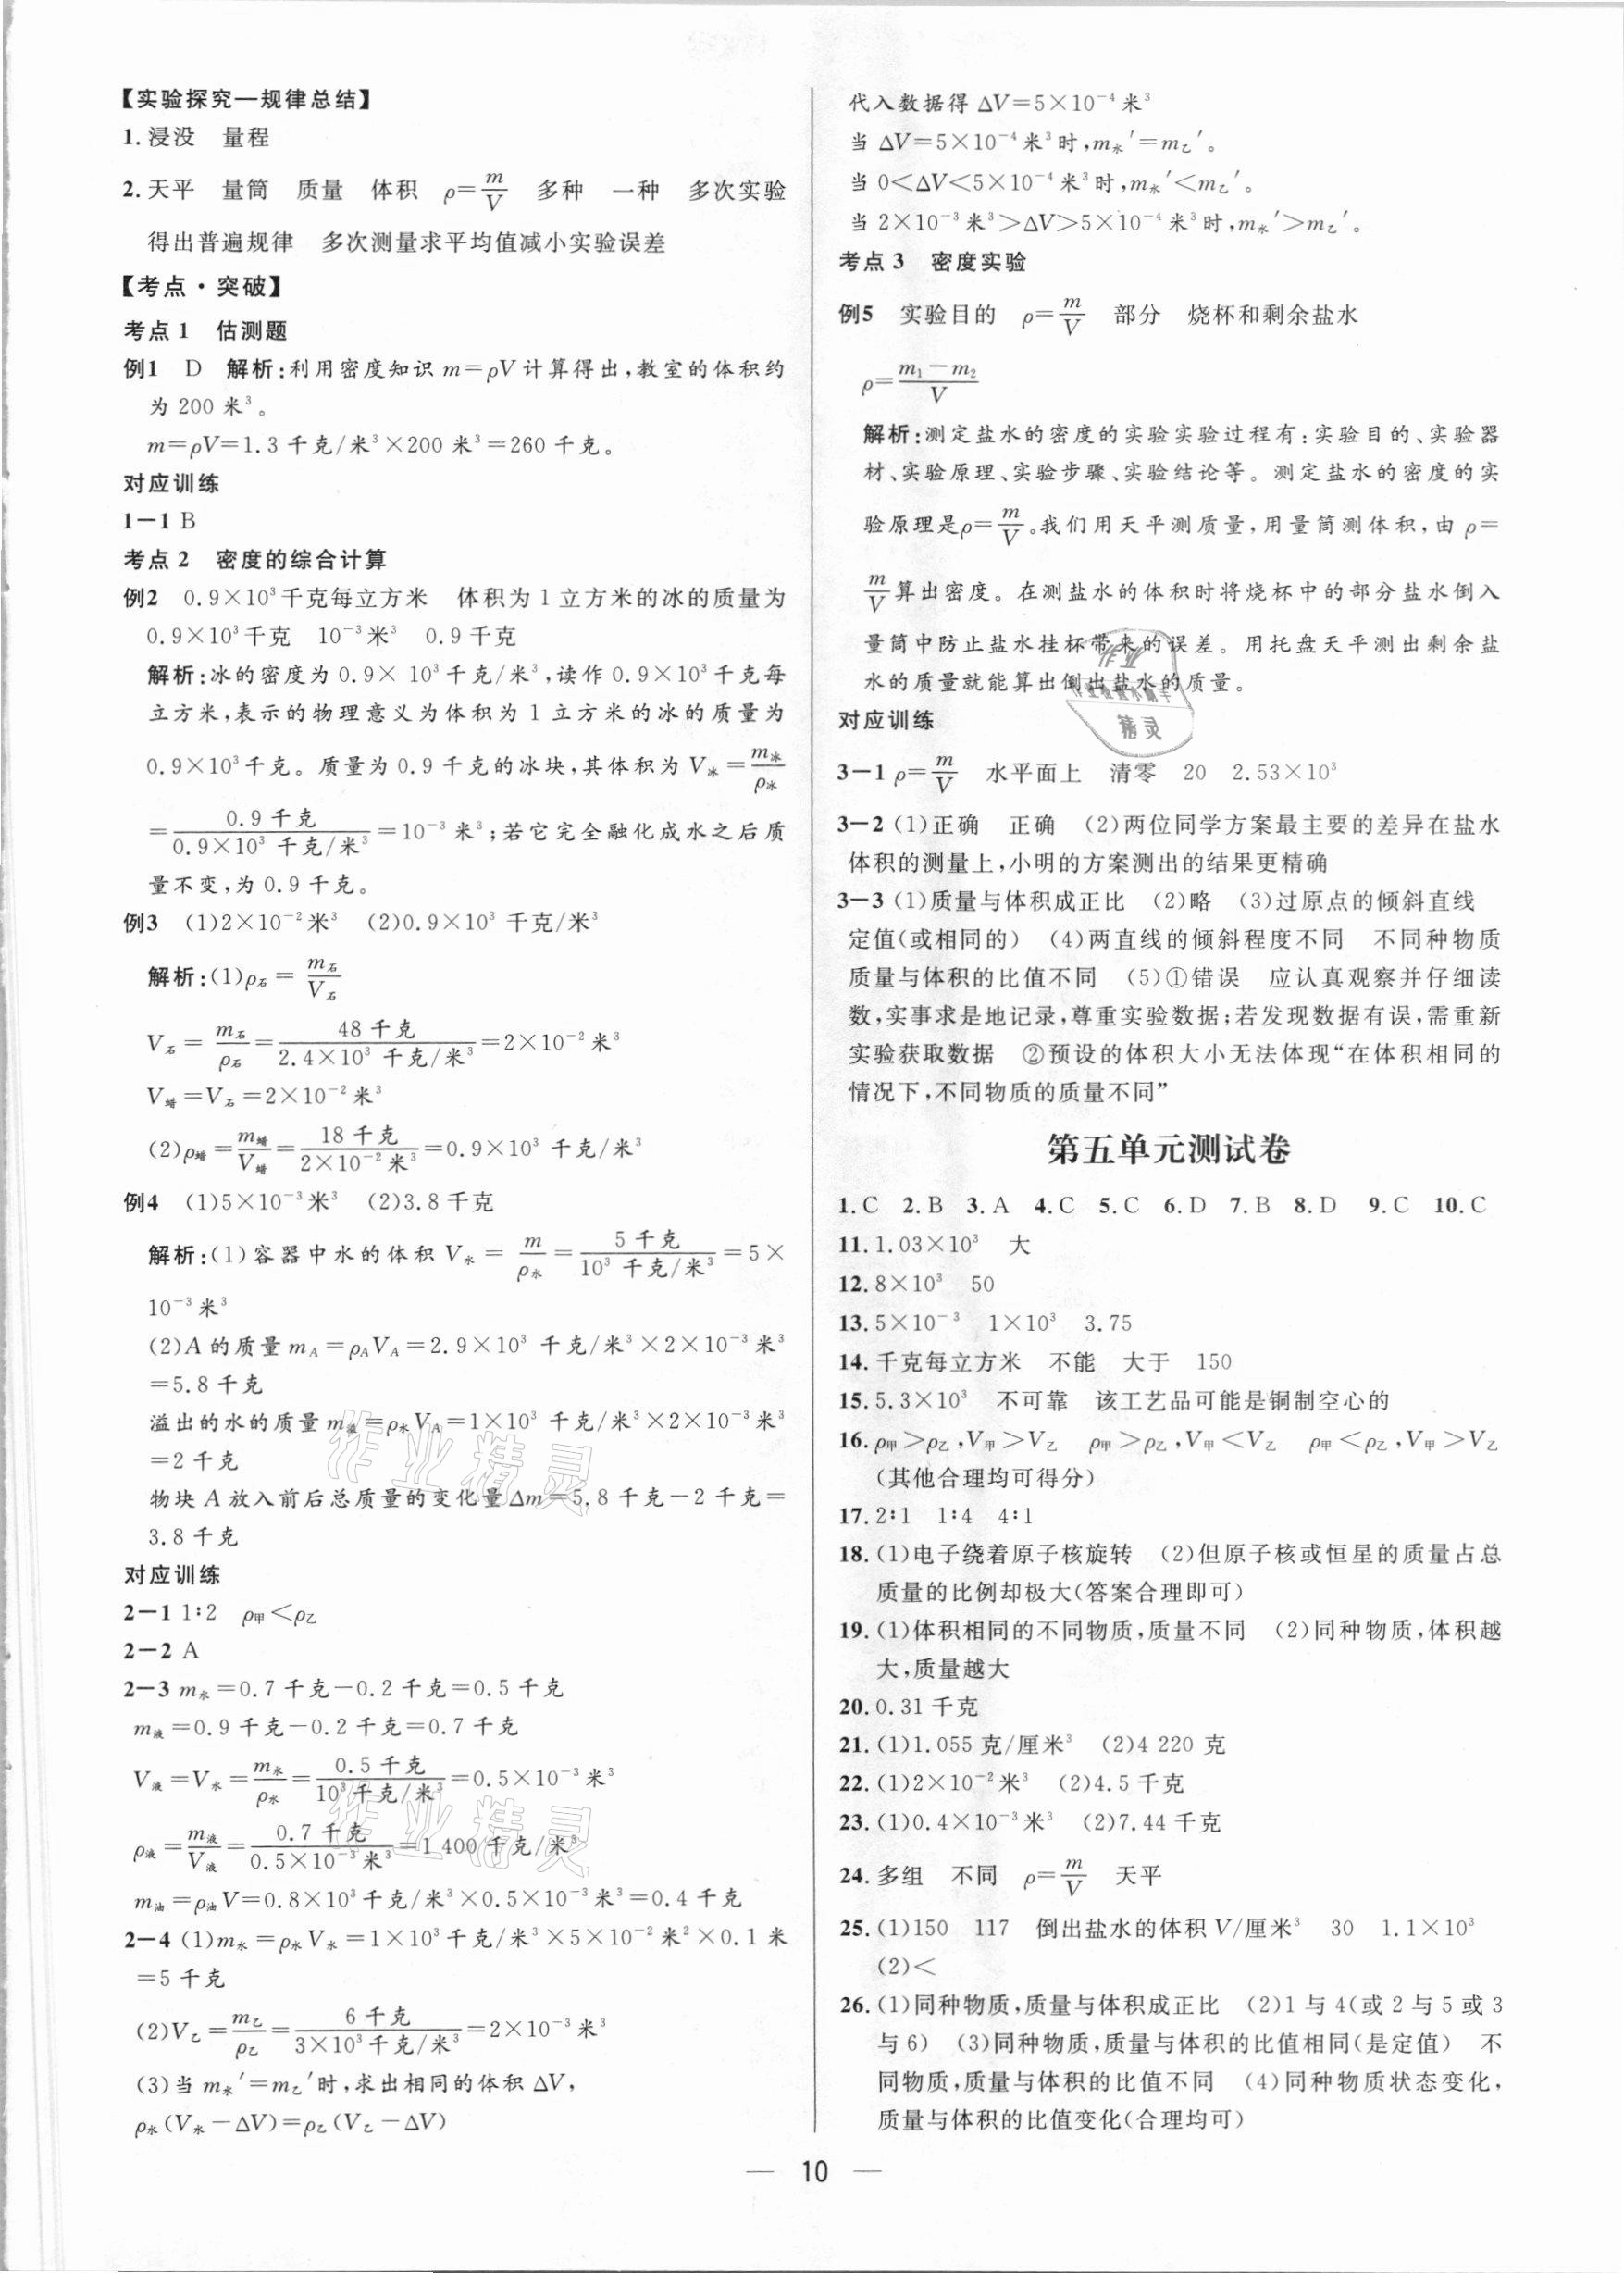 【实验探究—规律总结】
1.浸没　量程
2.天平　量筒　质量　体积　ρ=m/V　多种　一种　多次实验
得出普遍规律　多次测量求平均值减小实验误差
【考点·突破】
考点1　估测题
例1　D　解析:利用密度知识 m=ρV 计算得出,教室的体积约
为 200 米³。
m=ρV=1.3 千克/米³×200 米³=260 千克。
对应训练
1-1 B
考点2　密度的综合计算
例2　0.9×10³千克每立方米　体积为1立方米的冰的质量为
0.9×10³千克　10⁻³米³　0.9千克
解析:冰的密度为 0.9× 10³千克/米³,读作 0.9×10³千克每
立方米,表示的物理意义为体积为1立方米的冰的质量为
0.9×10³千克。质量为 0.9 千克的冰块,其体积为 V冰=m冰/ρ冰
=0.9 千克/(0.9×10³ 千克/米³)=10⁻³米³;若它完全融化成水之后质
量不变,为 0.9 千克。
例3　(1)2×10⁻²米³　(2)0.9×10³ 千克/米³
解析:(1)ρ石=m石/V石
V石=m石/ρ石=48 千克/(2.4×10³ 千克/米³)=2×10⁻²米³
V蜡=V石=2×10⁻²米³
(2)ρ蜡=m蜡/V蜡=18 千克/(2×10⁻²米³)=0.9×10³ 千克/米³
例4　(1)5×10⁻³米³　(2)3.8 千克
解析:(1)容器中水的体积 V水=m/ρ水=5 千克/(10³ 千克/米³)=5×
10⁻³米³
(2)A 的质量 mA=ρAVA=2.9×10³ 千克/米³×2×10⁻³米³
=5.8 千克
溢出的水的质量 m溢=ρ水VA=1×10³ 千克/米³×2×10⁻³米³
=2 千克
物块 A 放入前后总质量的变化量Δm=5.8 千克-2 千克=
3.8 千克
对应训练
2-1 1∶2　ρ甲<ρ乙
2-2 A
2-3 m水=0.7 千克-0.2 千克=0.5 千克
m液=0.9 千克-0.2 千克=0.7 千克
V液=V水=m水/ρ水=0.5 千克/(10³千克/米³)=0.5×10⁻³米³
ρ液=m液/V液=0.7 千克/(0.5×10⁻³米³)=1 400 千克/米³
m油=ρ油V=0.8×10³千克/米³×0.5×10⁻³米³=0.4 千克
2-4 (1)m水=ρ水V水=1×10³千克/米³×5×10⁻²米²×0.1 米
=5 千克
(2)V乙=m乙/ρ乙=6 千克/(3×10³千克/米³)=2×10⁻³米³
(3)当 m水′=m乙′时,求出相同的体积 ΔV,
ρ水(V水-ΔV)=ρ乙(V乙-ΔV)
代入数据得 ΔV=5×10⁻⁴米³
当 ΔV=5×10⁻⁴米³时,m水′=m乙′。
当 0<ΔV<5×10⁻⁴米³时,m水′<m乙′。
当 2×10⁻³米³>ΔV>5×10⁻⁴米³时,m水′>m乙′。
考点3　密度实验
例5　实验目的　ρ=m/V　部分　烧杯和剩余盐水
ρ=(m₁-m₂)/V
解析:测定盐水的密度的实验实验过程有:实验目的、实验器
材、实验原理、实验步骤、实验结论等。测定盐水的密度的实
验原理是ρ=m/V。我们用天平测质量,用量筒测体积,由 ρ=
m/V算出密度。在测盐水的体积时将烧杯中的部分盐水倒入
量筒中防止盐水挂杯带来的误差。用托盘天平测出剩余盐
水的质量就能算出倒出盐水的质量。
对应训练
3-1 ρ=m/V　水平面上　清零　20　2.53×10³
3-2 (1)正确　正确　(2)两位同学方案最主要的差异在盐水
体积的测量上,小明的方案测出的结果更精确
3-3 (1)质量与体积成正比　(2)略　(3)过原点的倾斜直线
定值(或相同的)　(4)两直线的倾斜程度不同　不同种物质
质量与体积的比值不同　(5)①错误　应认真观察并仔细读
数,实事求是地记录,尊重实验数据;若发现数据有误,需重新
实验获取数据　②预设的体积大小无法体现“在体积相同的
情况下,不同物质的质量不同”
第五单元测试卷
1.C　2.B　3.A　4.C　5.C　6.D　7.B　8.D　9.C　10.C
11.1.03×10³　大
12.8×10³　50
13.5×10⁻³　1×10³　3.75
14.千克每立方米　不能　大于　150
15.5.3×10³　不可靠　该工艺品可能是铜制空心的
16.ρ甲>ρ乙,V甲>V乙　ρ甲>ρ乙,V甲<V乙　ρ甲<ρ乙,V甲>V乙
(其他合理均可得分)
17.2∶1　1∶4　4∶1
18.(1)电子绕着原子核旋转　(2)但原子核或恒星的质量占总
质量的比例却极大(答案合理即可)
19.(1)体积相同的不同物质,质量不同　(2)同种物质,体积越
大,质量越大
20.0.31千克
21.(1)1.055 克/厘米³　(2)4 220 克
22.(1)2×10⁻²米³　(2)4.5千克
23.(1)0.4×10⁻³米³　(2)7.44千克
24.多组　不同　ρ=m/V　天平
25.(1)150　117　倒出盐水的体积V/厘米³　30　1.1×10³
(2)<
26.(1)同种物质,质量与体积成正比　(2)1 与 4(或 2 与 5 或 3
与6)　(3)同种物质,质量与体积的比值相同(是定值)　不
同物质,质量与体积的比值不同　(4)同种物质状态变化,
质量与体积的比值变化(合理均可)
— 10 —
作业精灵
作业精灵
作业
精灵